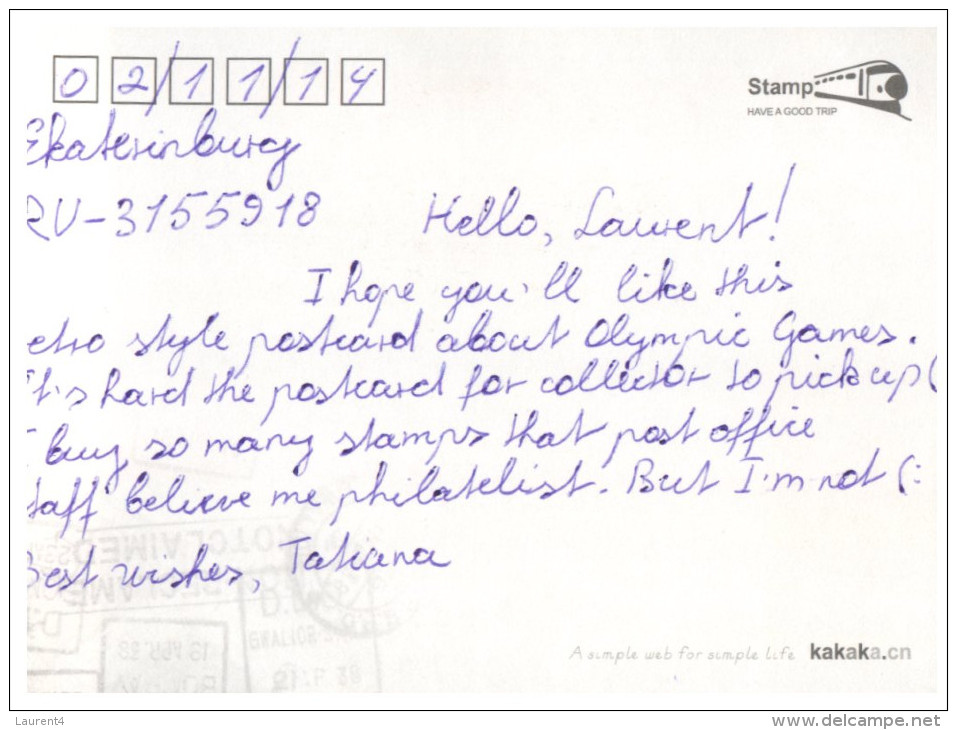 02/11/14
Stamp
HAVE A GOOD TRIP
Ekaterinburg
RU-3155918
Hello, Laurent!
I hope you'll like this
etro style postcard about Olympic Games.
It's hard the postcard for collector to pick up (
I buy so many stamps that post office
staff believe me philatelist. But I'm not (:
Best wishes, Tatiana
A simple web for simple life kakaka.cn
Laurent4
www.delcampe.net